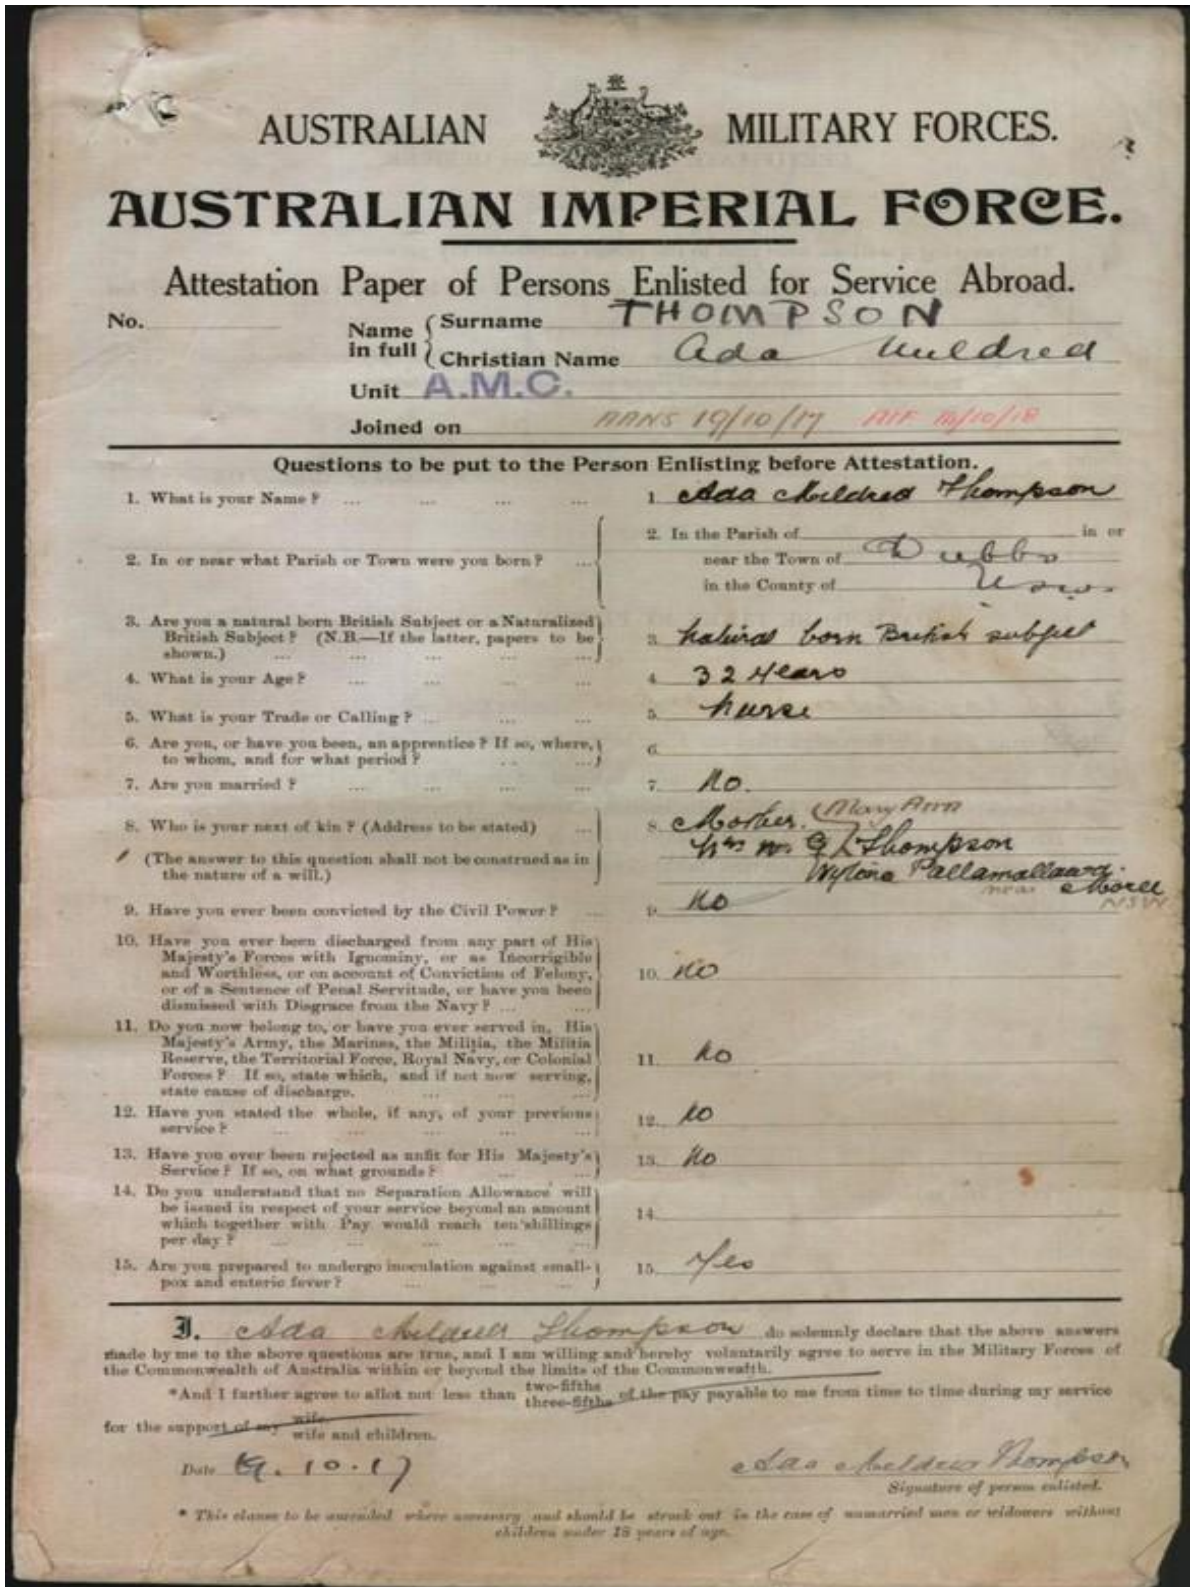 AUSTRALIAN MILITARY FORCES.
AUSTRALIAN IMPERIAL FORCE.
Attestation Paper of Persons Enlisted for Service Abroad.
No. Name in full Surname THOMPSON
Christian Name Ada Mildred
Unit A.M.C.
Joined on AANS 19/10/17 AIF 10/18
Questions to be put to the Person Enlisting before Attestation.
1. What is your Name? ... ... ... ... 1. Ada Mildred Thompson
2. In or near what Parish or Town were you born? ... 2. In the Parish of in or
near the Town of Dubbo
in the County of NSW.
3. Are you a natural born British Subject or a Naturalized
British Subject? (N.B.—If the latter, papers to be
shown.) ... ... ... ... ... 3. Natural born British subject
4. What is your Age? ... ... ... ... 4. 32 years
5. What is your Trade or Calling? ... ... ... 5. Nurse
6. Are you, or have you been, an apprentice? If so, where,
to whom, and for what period? ... ... 6.
7. Are you married? ... ... ... ... 7. No.
8. Who is your next of kin? (Address to be stated) ... 8. Mother. (Mary Ann
(The answer to this question shall not be construed as in
the nature of a will.)
Thompson
Pallamallawa.
near Moree
NSW
9. Have you ever been convicted by the Civil Power? ... 9. No
10. Have you ever been discharged from any part of His
Majesty's Forces with Ignominy, or as Incorrigible
and Worthless, or on account of Conviction of Felony,
or of a Sentence of Penal Servitude, or have you been
dismissed with Disgrace from the Navy? ... ... 10. No
11. Do you now belong to, or have you ever served in, His
Majesty's Army, the Marines, the Militia, the Militia
Reserve, the Territorial Force, Royal Navy, or Colonial
Forces? If so, state which, and if not now serving,
state cause of discharge. ... ... ... 11. No
12. Have you stated the whole, if any, of your previous
service? ... ... ... ... ... 12. No
13. Have you ever been rejected as unfit for His Majesty's
Service? If so, on what grounds? ... ... 13. No
14. Do you understand that no Separation Allowance will
be issued in respect of your service beyond an amount
which together with Pay would reach ten shillings
per day? ... ... ... ... ... 14.
15. Are you prepared to undergo inoculation against small-
pox and enteric fever? ... ... ... 15. Yes
I, Ada Mildred Thompson do solemnly declare that the above answers
made by me to the above questions are true, and I am willing and hereby voluntarily agree to serve in the Military Forces of
the Commonwealth of Australia within or beyond the limits of the Commonwealth.
*And I further agree to allot not less than two-fifths three-fifths of the pay payable to me from time to time during my service
for the support of my wife. wife and children.
Date 19.10.17 Ada Mildred Thompson
Signature of person enlisted.
* This clause to be amended where necessary and should be struck out in the case of unmarried men or widowers without
children under 18 years of age.